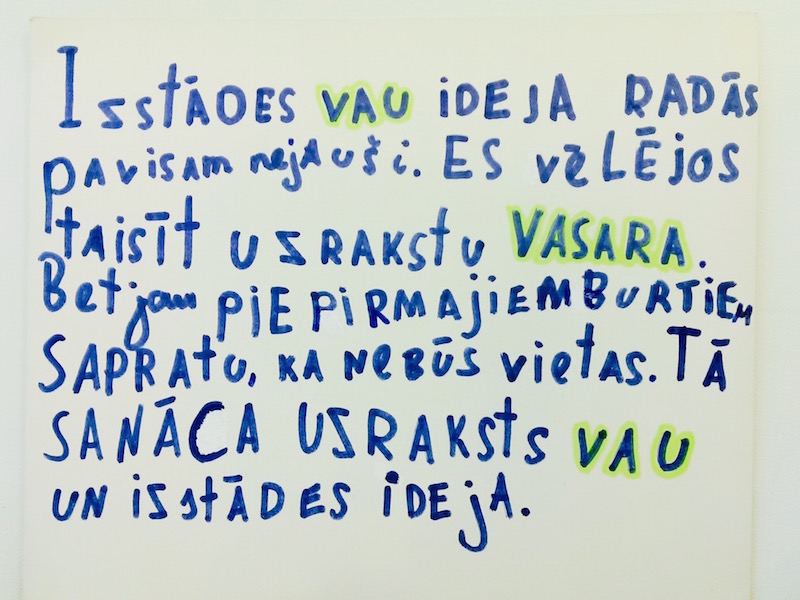 Izstādes VAU ideja radās
pavisam nejauši. Es vēlējos
taisīt uzrakstu VASARA.
Bet jau pie pirmajiem burtiem
sapratu, ka nebūs vietas. Tā
sanāca uzraksts VAU
un izstādes ideja.